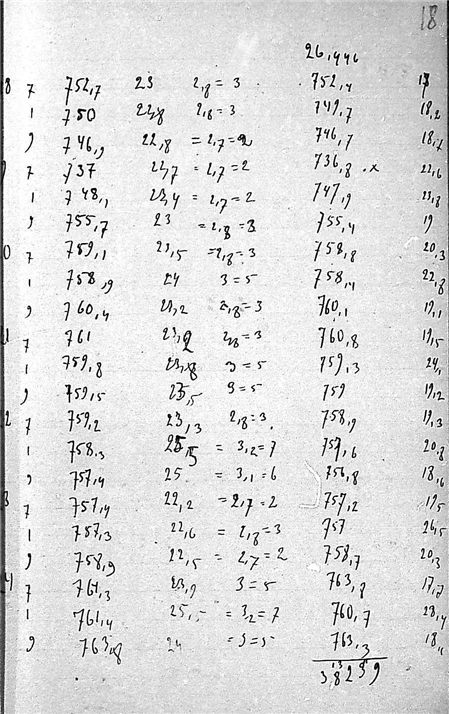 18
26,446
8 7 752,7 23 2,8 = 3 752,4
1 750 22,8 2,8 = 3 749,7 18,2
9 746,9 22,8 = 2,7 = 2 746,7 18,7
7 737 22,7 = 2,7 = 2 736,8 . x 22,6
1 748,1 23,4 = 2,7 = 2 747,9 23,8
9 755,7 23 = 2,8 = 3 755,4 19
0 7 759,1 23,5 = 2,8 = 3 758,8 20,3
1 758,9 24 3 = 5 758,4 22,8
9 760,4 23,2 2,8 = 3 760,1 19,1
7 761 2,8 = 3 760,8 19,5
1 759,8 3 = 5 759,3 24,1
9 759,5 23,5 3 = 5 759 19,2
2 7 759,2 23,3 2,8 = 3 758,9 19,3
1 758,3 25,5 = 3,2 = 7 757,6 20,8
9 757,4 25 = 3,1 = 6 756,8 18,6
3 7 757,4 22,2 = 2,7 = 2 757,2 19,5
1 757,3 22,6 = 2,8 = 3 757 26,5
9 758,9 22,5 = 2,7 = 2 758,7 20,3
4 7 761,3 23,9 3 = 5 763,8 17,7
1 761,4 25,5 = 3,2 = 7 760,7 23,4
9 763,8 24 = 3 = 5 763,3